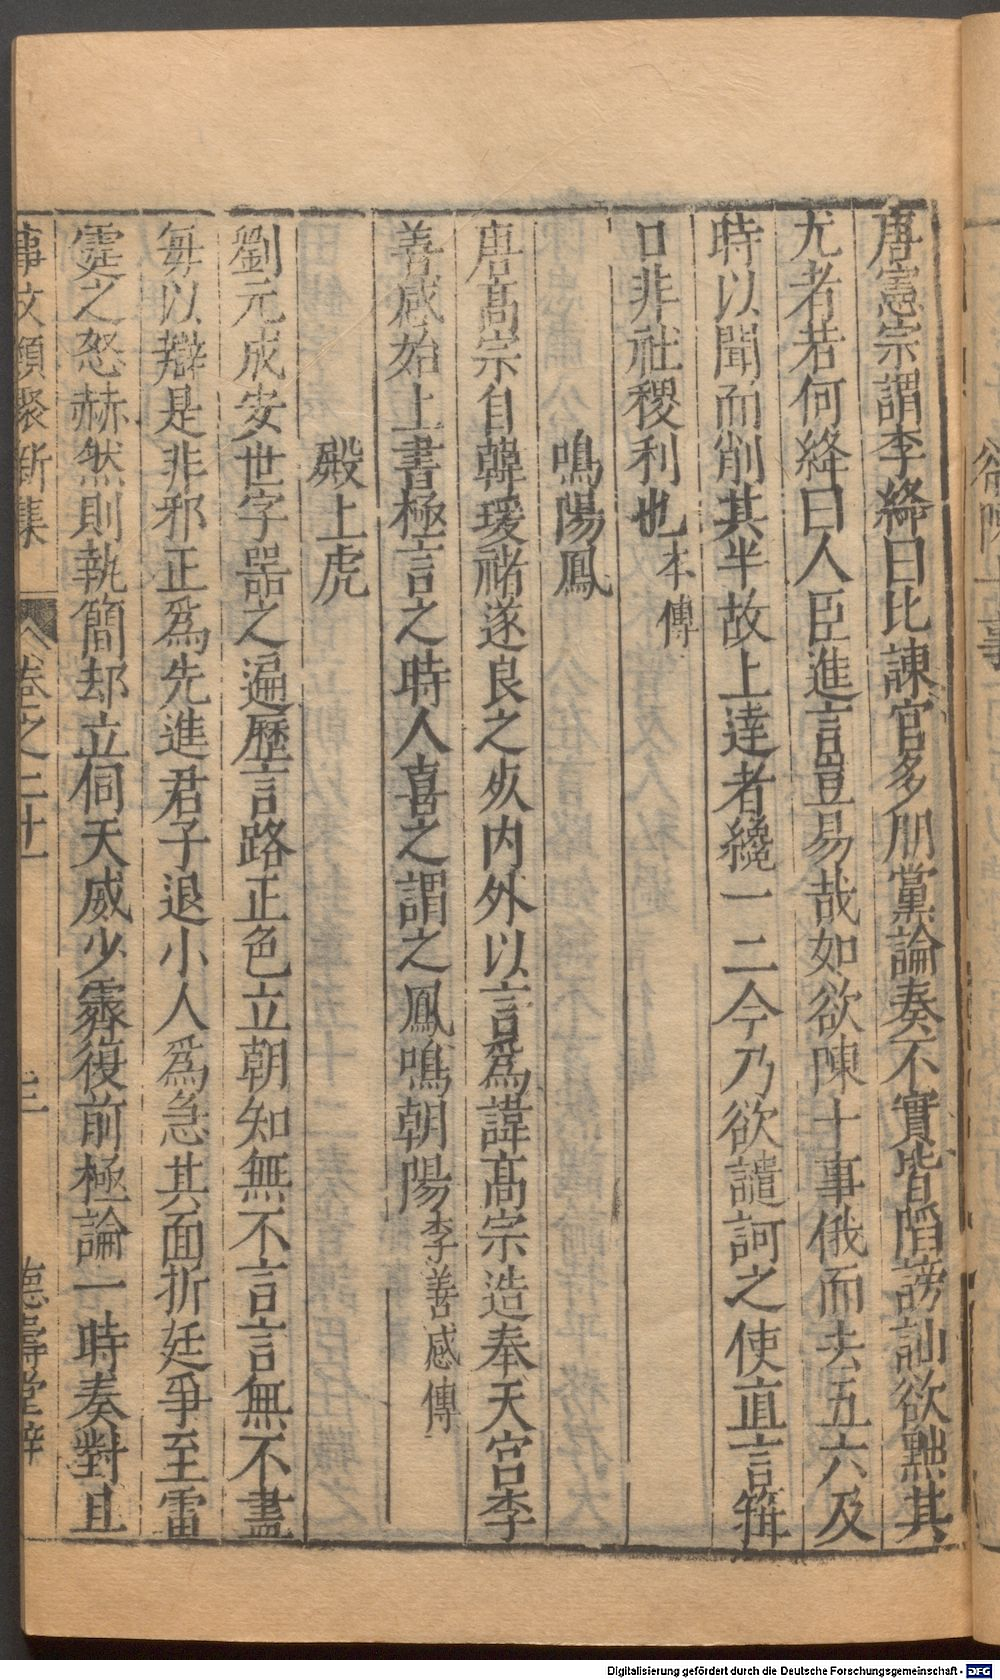 唐憲宗謂李絳曰比諫官多朋黨論奏不實皆陷謗訕欲黜其
尤者若何絳曰人臣進言豈易哉如欲陳十事俄而去五六及
時以聞而削其半故上達者纔一二今乃欲譴訶之使直言箝
口非社稷利也本傳
鳴陽鳳
唐高宗自韓瑗禇遂良之死内外以言爲諱高宗造奉天宮李
善感始上書極言之時人喜之謂之鳳鳴朝陽李善感傳
殿上虎
劉元成安世字噐之遍歷言路正色立朝知無不言言無不盡
毎以辯是非邪正爲先進君子退小人爲急其面折廷爭至雷
霆之怒赫然則執簡却立伺天威少霽復前極論一時奏對且
事文類聚新集 卷之二十一 德壽堂梓
Digitalisierung gefördert durch die Deutsche Forschungsgemeinschaft - DFG